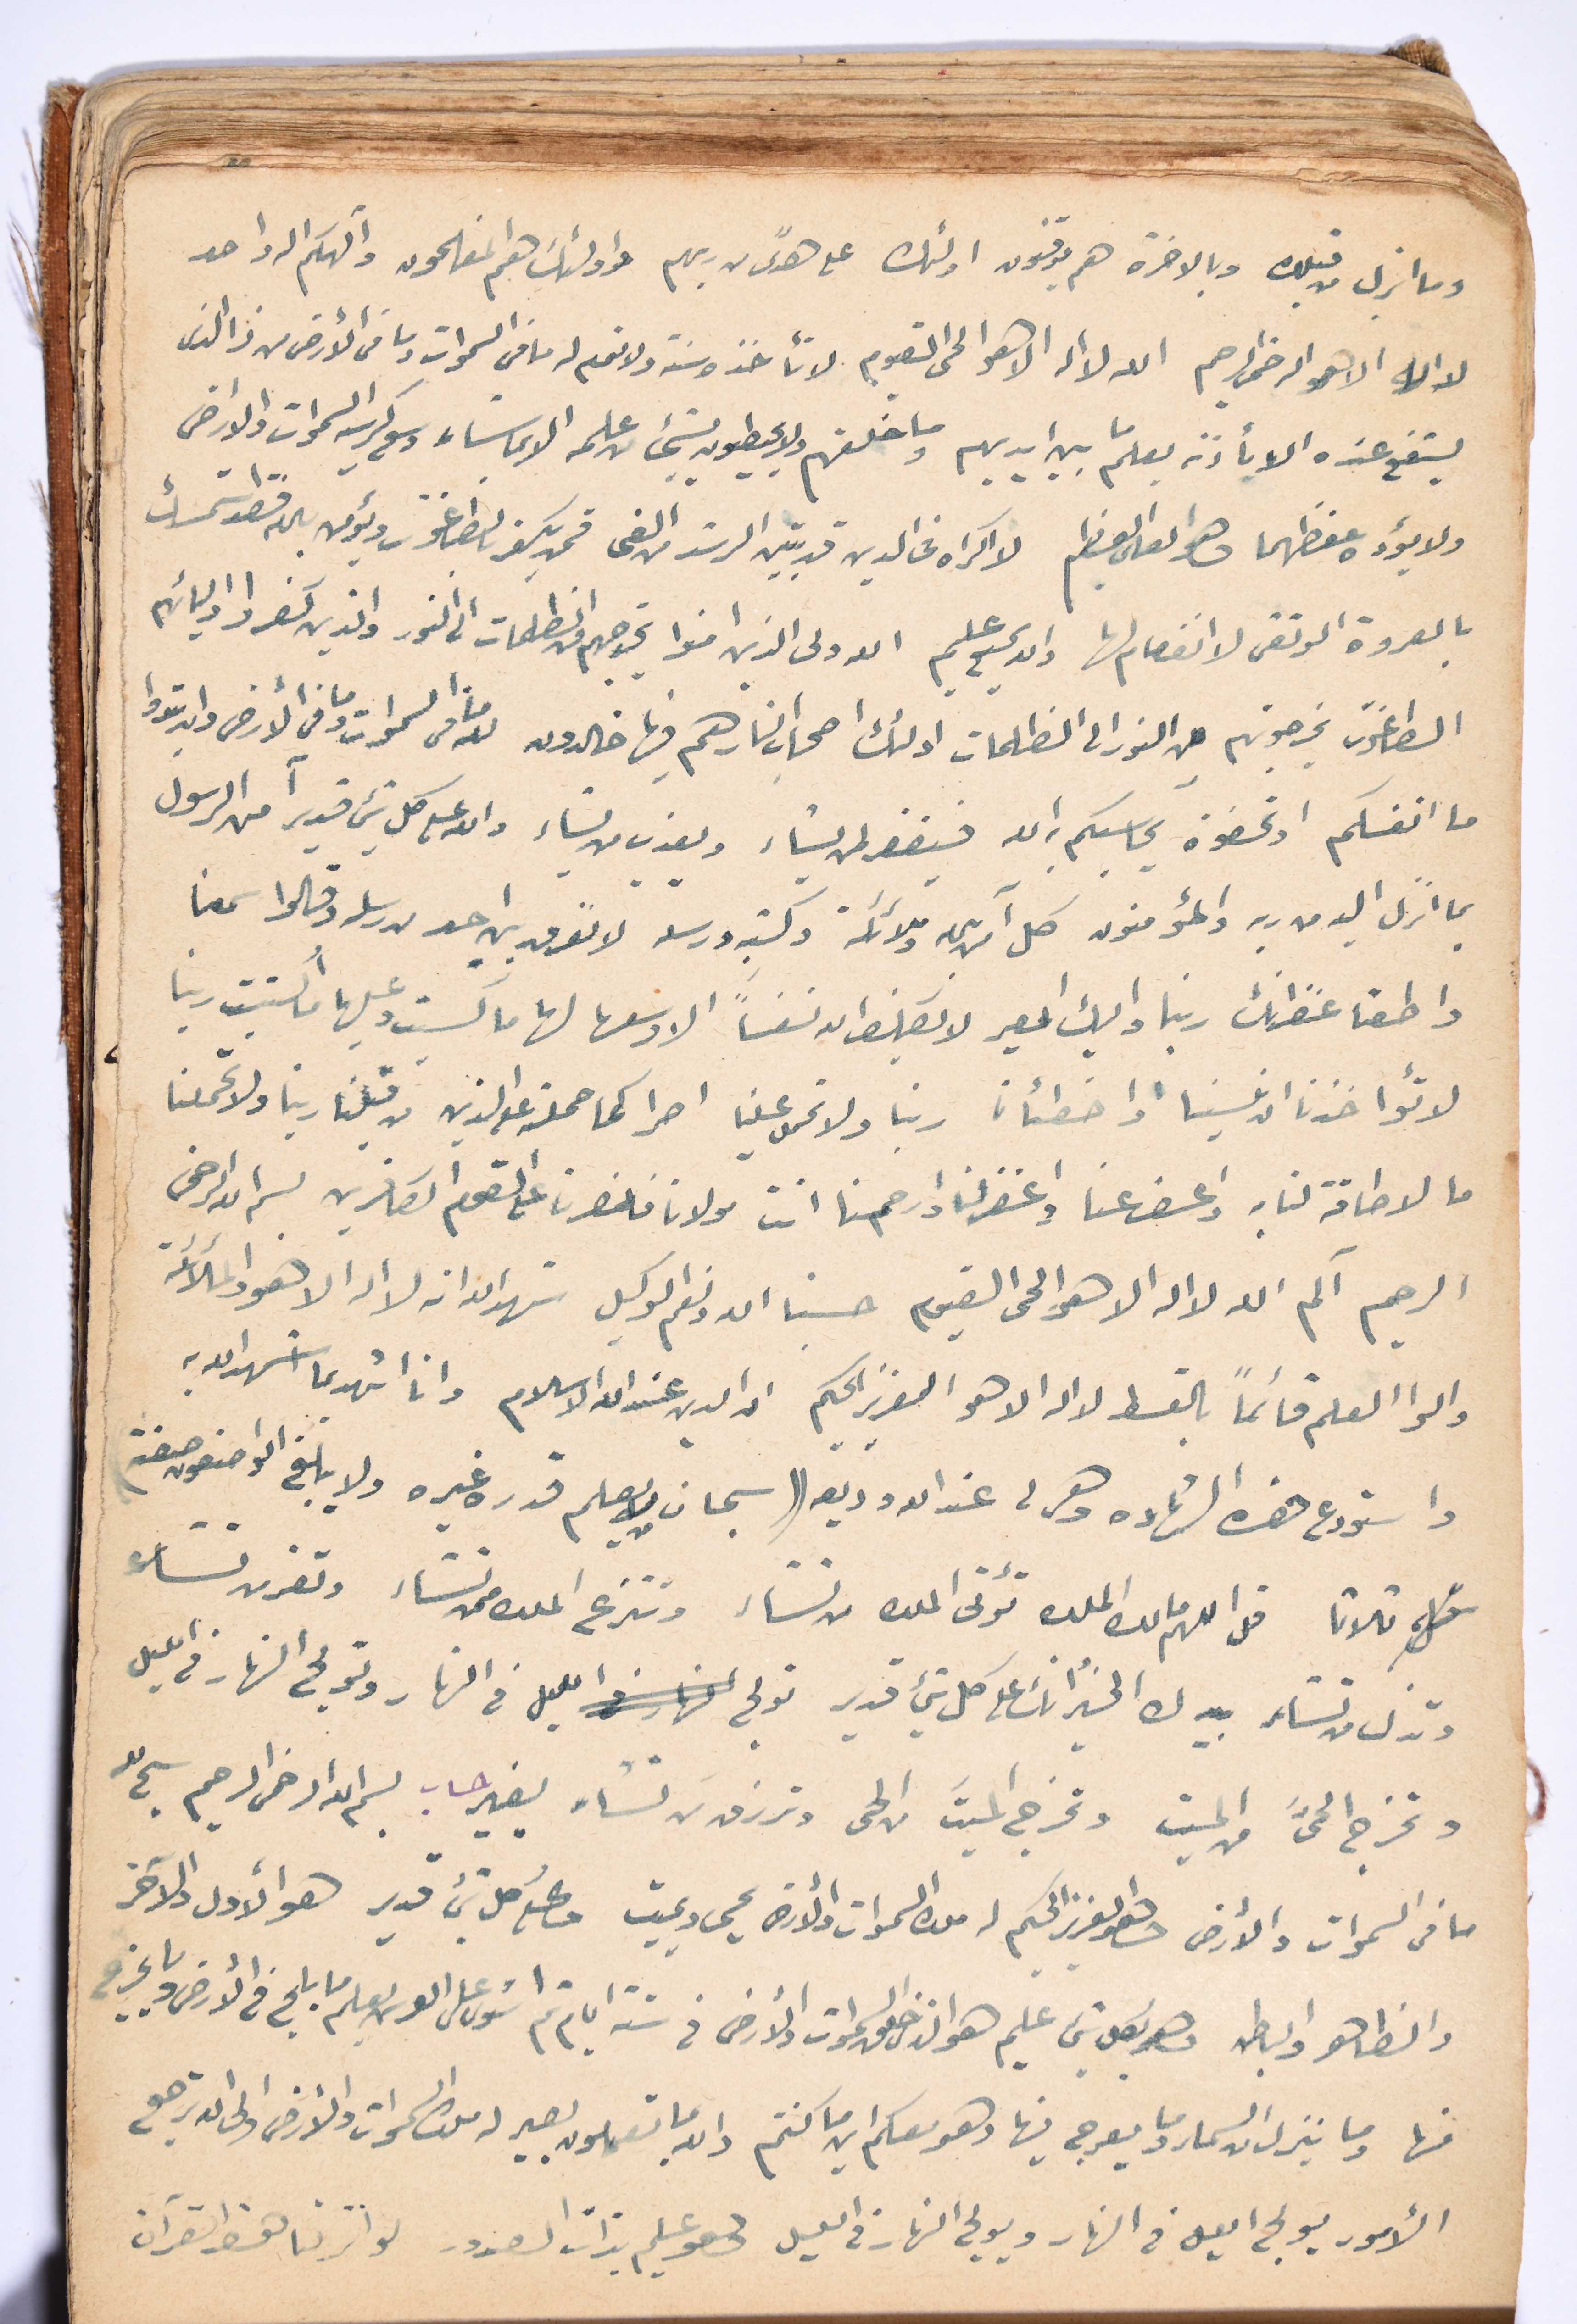 وما انزل من قبلك وبالاخرة هم يوقنون اولئك على هدًى من ربهم واولئك هم المفلحون وآلهكم اله واحد
لا اله الا هو الرحمن الرحيم الله لا اله الا هو الحى القيوم لا تأخذه سنة ولا نوم له ما فى السموات وما فى الأرض من ذا الذى
يشفع عنده الا بأذنه يعلم ما بين ايديهم وما خلفهم ولا يحيطون بشئ من علمه الا بما شاء وسع كرسيه السموات والارض
ولا يؤده حفظهما وهو العلى العظيم لا اكراه فى الدين قد تبين الرشد من الغى فمن يكفر بالطاغوت ويؤمن بالله فقد استمسك
بالعروة الوثقى لا انفصام لها والله سميع عليم الله ولى الذين امنوا يخرجهم من الظلمات الى النور والذين كفروا اوليائهم
الطاغوت يخرجونهم من النور الى الظلمات اولئك اصحاب النار هم فيها خالدون لله ما فى السموات وما فى الأرض وان تبدوا
ما انفسكم او تخفوه يحاسبكم به الله فيغفر لمن يشاء ويعذب من يشاء والله على كل شئ قدير آمن الرسول
بما انزل اليه من ربه والمؤمنون كل آمن بالله وملائكته وكتبه ورسله لا نفرق بين احد من رسله وقالوا سمعنا
واطعنا غفرانك ربنا واليك المصير لا يكلف الله نفساً الا وسعها لها ما كسبت وعليها ما اكتسبت ربنا
لا تؤاخذنا ان نسينا او اخطأنا ربنا ولا تحمل علينا اصرا كما حملته على الذين من قبلنا ربنا ولا تحملنا
ما لا طاقة لنا به واعف عنا واغفر لنا وارحمنا انت مولانا فانصرنا على القوم الكافرين بسم الله الرحمن
الرحيم آلم الله لا اله الا هو الحى القيوم حسبنا الله ونعم الوكيل شهد الله انه لا اله الا هو والملائكة
والوا العلم قائماً بالقسط لا اله الا هو العزيز الحكيم ان الدين عند الله الاسلام وانا اشهد بما شهد الله به
واستودع هذه الشهاده وهى لى عند الله وديعه (( سبحان من لا يعلم قدره غيره ولا يبلغ الواصفون صفته )
ثلاثا قل اللهم مالك الملك تؤتى الملك من تشاء وتنزع الملك ممن تشاء وتعز من تشاء
وتذل من تشاء بيدك الخير انك على كل شئ قدير تولج الليل فى النهار وتولج النهار فى الليل
وتخرج الحىَّ من الميت وتخرج الميتَ من الحى وترزق من تشاء بغير حساب بسم الله الرحمن الرحيم سبح لله
ما فى السموات والأرض وهو العزيز الحكيم له ملك السموات والأرض يحيى ويميت وهو على كل شئ قدير هو الأول والآخر
والظاهر والباطن وهو بكل شئ عليم هو الذى خلق السموات والأرض فى ستة ايام ثم استوى على العرش يعلم ما يلج فى الأرض وما يخرج
منها وما ينزل من السماء وما يعرج فيها وهو معكم اين ما كنتم والله بما تعملون بصير له ملك السموات والأرض والى الله ترجع
الأمور يولج الليل فى النهار ويولج النهار فى الليل وهو عليم بذات الصدور لو انزلنا هذا القرآن